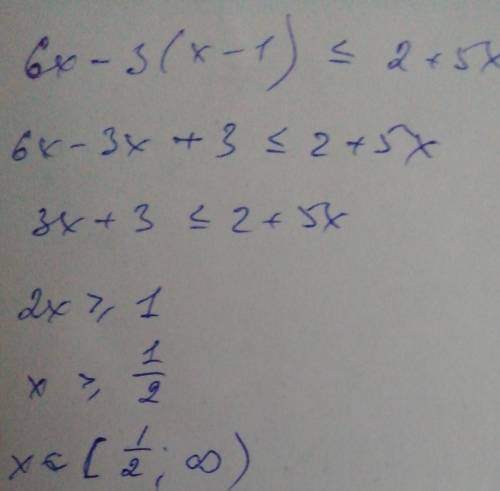 6x - 3(x - 1) ≤ 2 + 5x
6x - 3x + 3 ≤ 2 + 5x
3x + 3 ≤ 2 + 5x
2x ≥ 1
x ≥ 1/2
x ∈ [1/2; ∞)